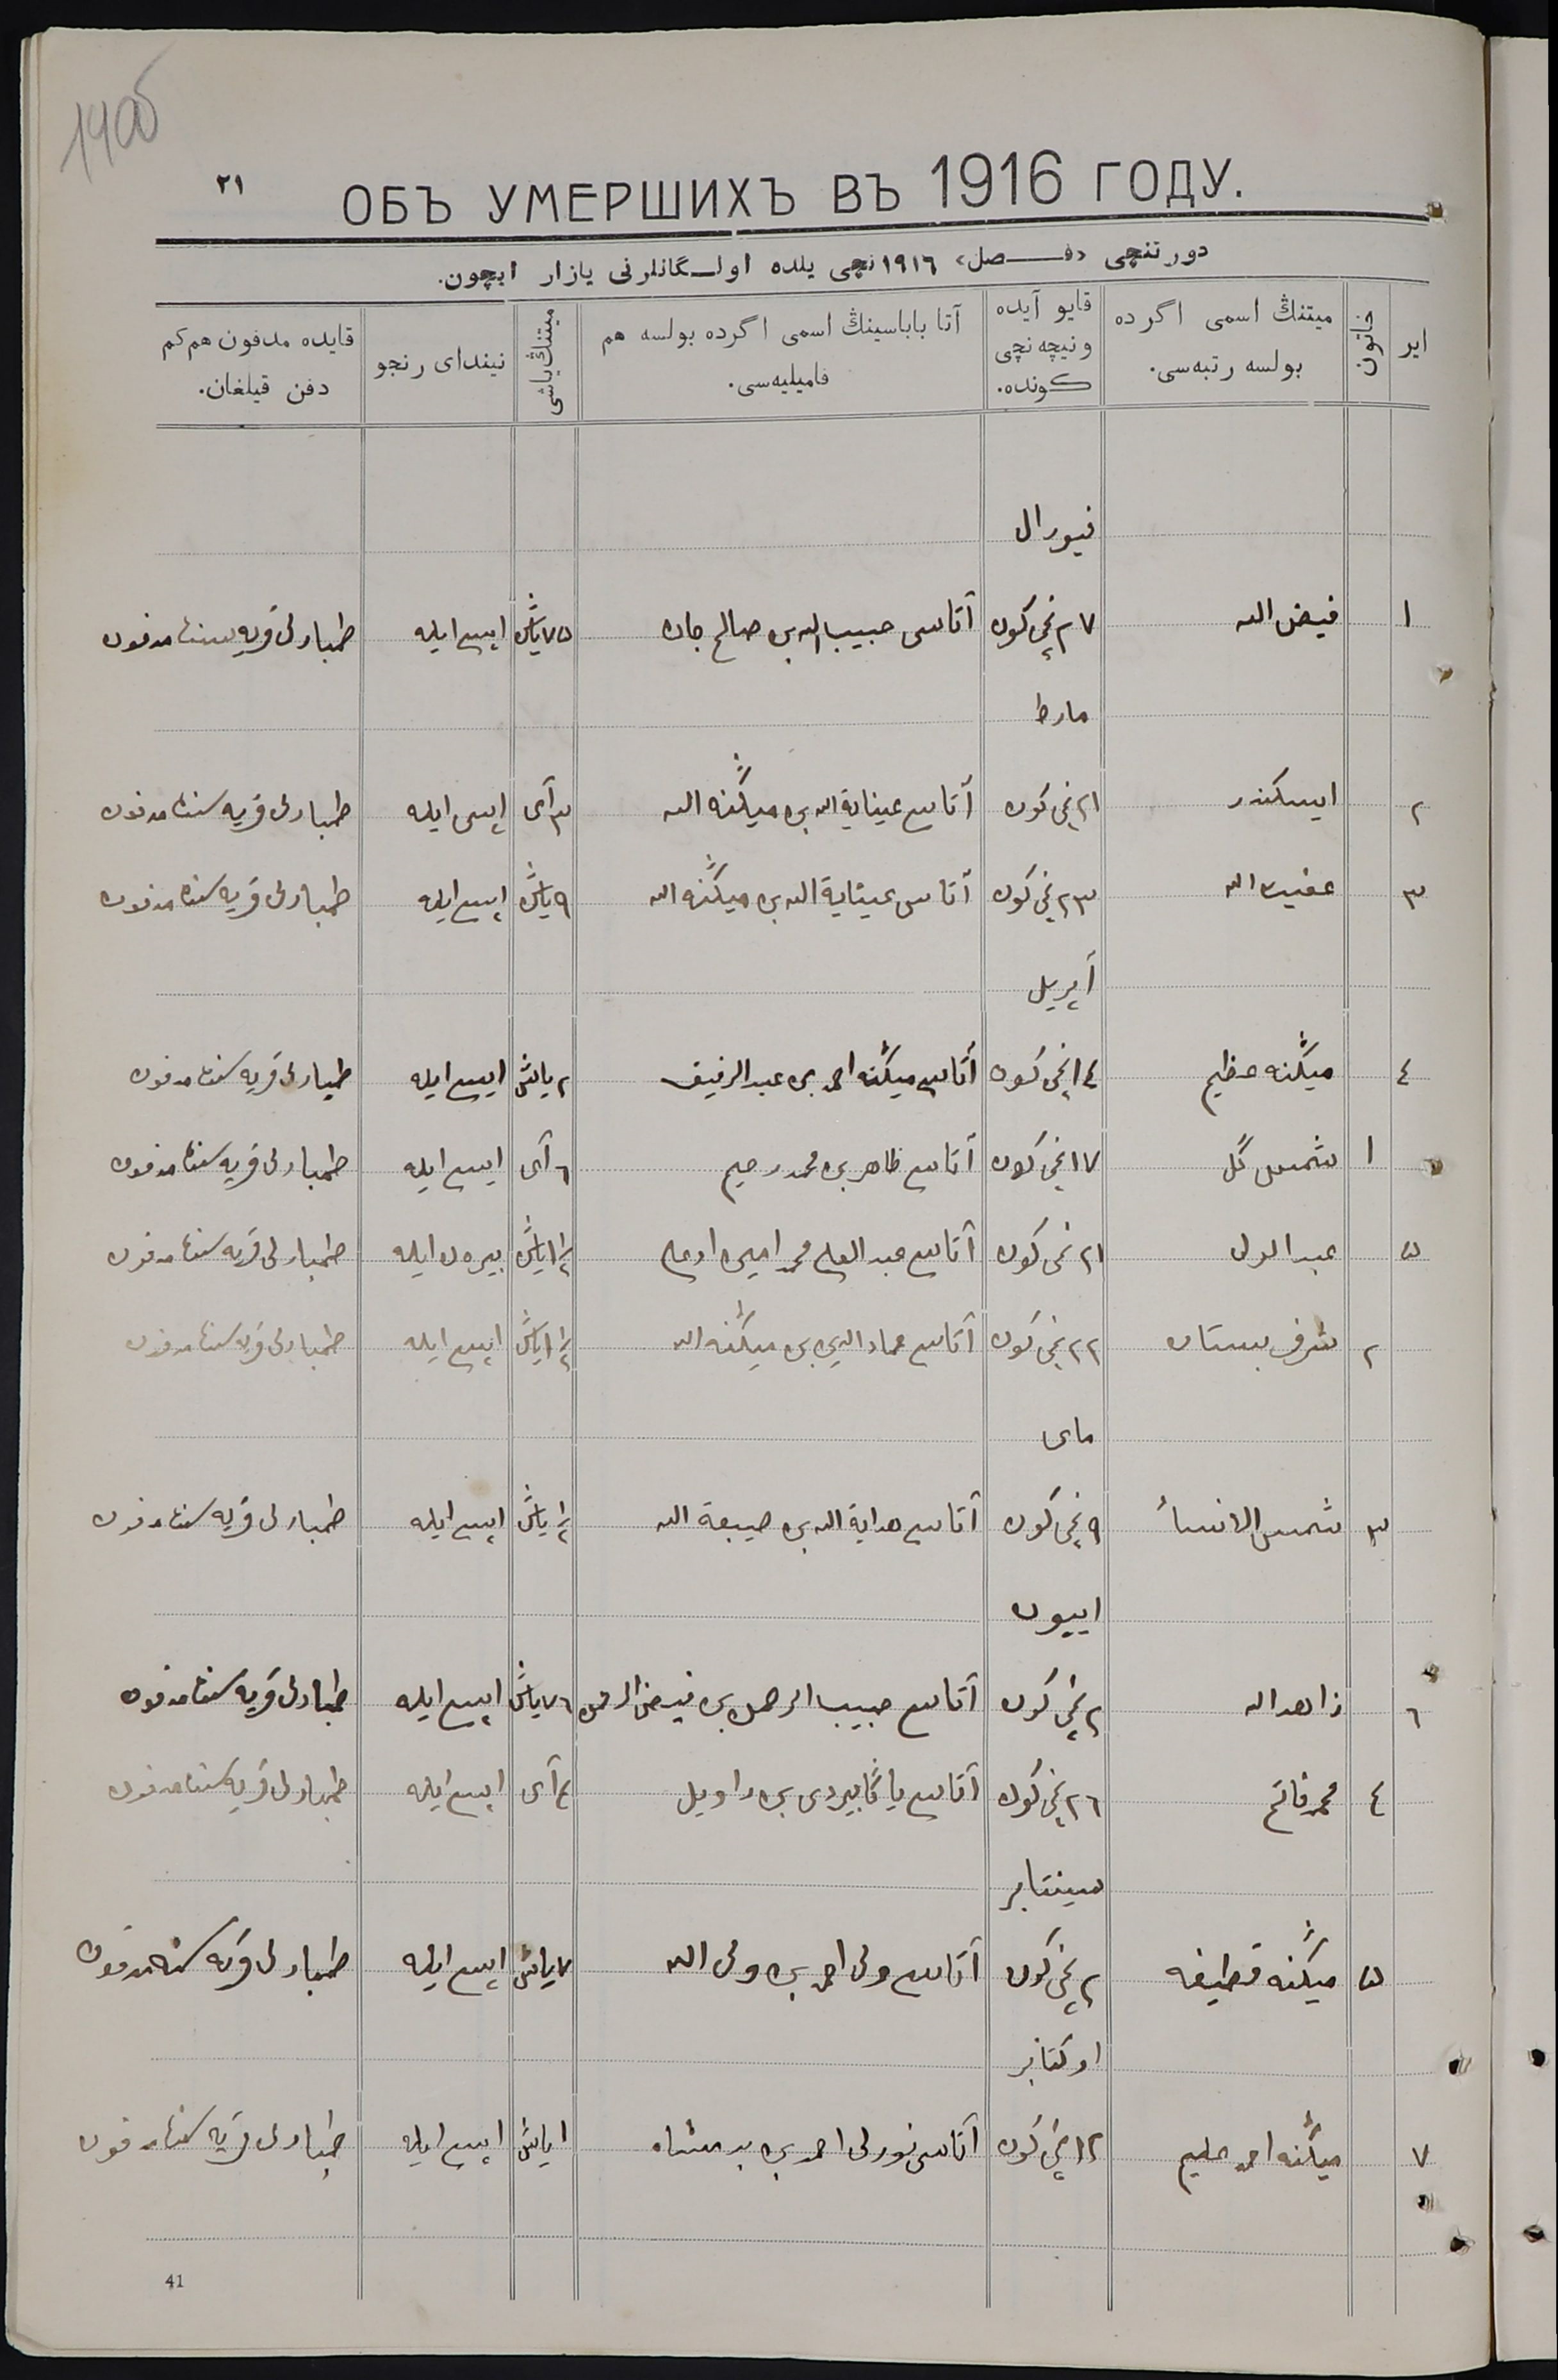 140б
٢١
ОБЪ УМЕРШИХЪ ВЪ 1916 ГОДУ.
دورتنچی «فـــصل» ١٩١٦نچی یلده اولـگانلرنی یازار ایچون.
ایر
خاتون
میتنڭ اسمی اگرده
بولسه رتبه‌سی.
قایو آیده
ونیچه نچی
كونده.
آتا باباسینڭ اسمی اگرده بولسه هم
فامیلیه‌سی.
میتنڭ یاشی
نیندای رنجو
قایده مدفون هم كم
دفن قیلغان.
فیورال
١ فیض الله ٢٧نچی كون آتاسی حبیب الله بن صالح جان ٧٥یاش اپسی ایله طمبارلی قریه‌سنده مدفون
مارط
٢ ایسكندر ٢١نچی كون آتاسی عینایة الله بن میڭنه الله ٣آی اپسی ایله طمبارلی قریه سنده مدفون
٣ الله ٢٣نچی كون آتاسی عینایة الله بن میڭنه الله ٩یاش اپسی ایله طمبارلی قریه سنده مدفون
آپریل
٤ میڭنه عظیم ١٤نچی كون آتاسی میڭنه احمد بن عبد الرفیق ٢یاش اپسی ایله طمبارلی قریه سنده مدفون
١ شمس گل ١٧نچی كون آتاسی ظاهر بن محمد رحیم ٦آی اپسی ایله طمبارلی قریه سنده مدفون
٥ عبد الولی ٢١نچی كون آتاسی عبد محمد امین یاش ایله طمبارلی قریه سنده مدفون
٢ شرف بستان ٢٢نچی كون آتاسی عماد الدین بن میڭنه الله یاش اپسی ایله طمبارلی قریه سنده مدفون
مای
٣ شمس الانساء ٩نچی كون آتاسی هدایة الله بن صبیغة الله یاش اپسی ایله طمبارلی قریه سنده مدفون
اییون
٦ زاهد الله ٢نچی كون آتاسی حبیب الرحمن بن فیض الرحمن ٧٦یاش اپسی ایله طمبارلی قریه سنده مدفون
٤ محمد فاتح ٢٦نچی كون آتاسی یاڭابیردی بن راویل ٤آی اپسی ایله طمبارلی قریه سنده مدفون
سینتابر
٥ میڭنه قطیفه ٢نچی كون آتاسی ولی احمد بن ولی الله ٧یاش اپسی ایله طمبارلی قریه سنده مدفون
اوكتابر
٧ میڭنه احمد حلیم ١٢نچی كون آتاسی نورلی احمد بن بدرشاه ١یاش اپسی ایله طمبارلی قریه سنده مدفون
41